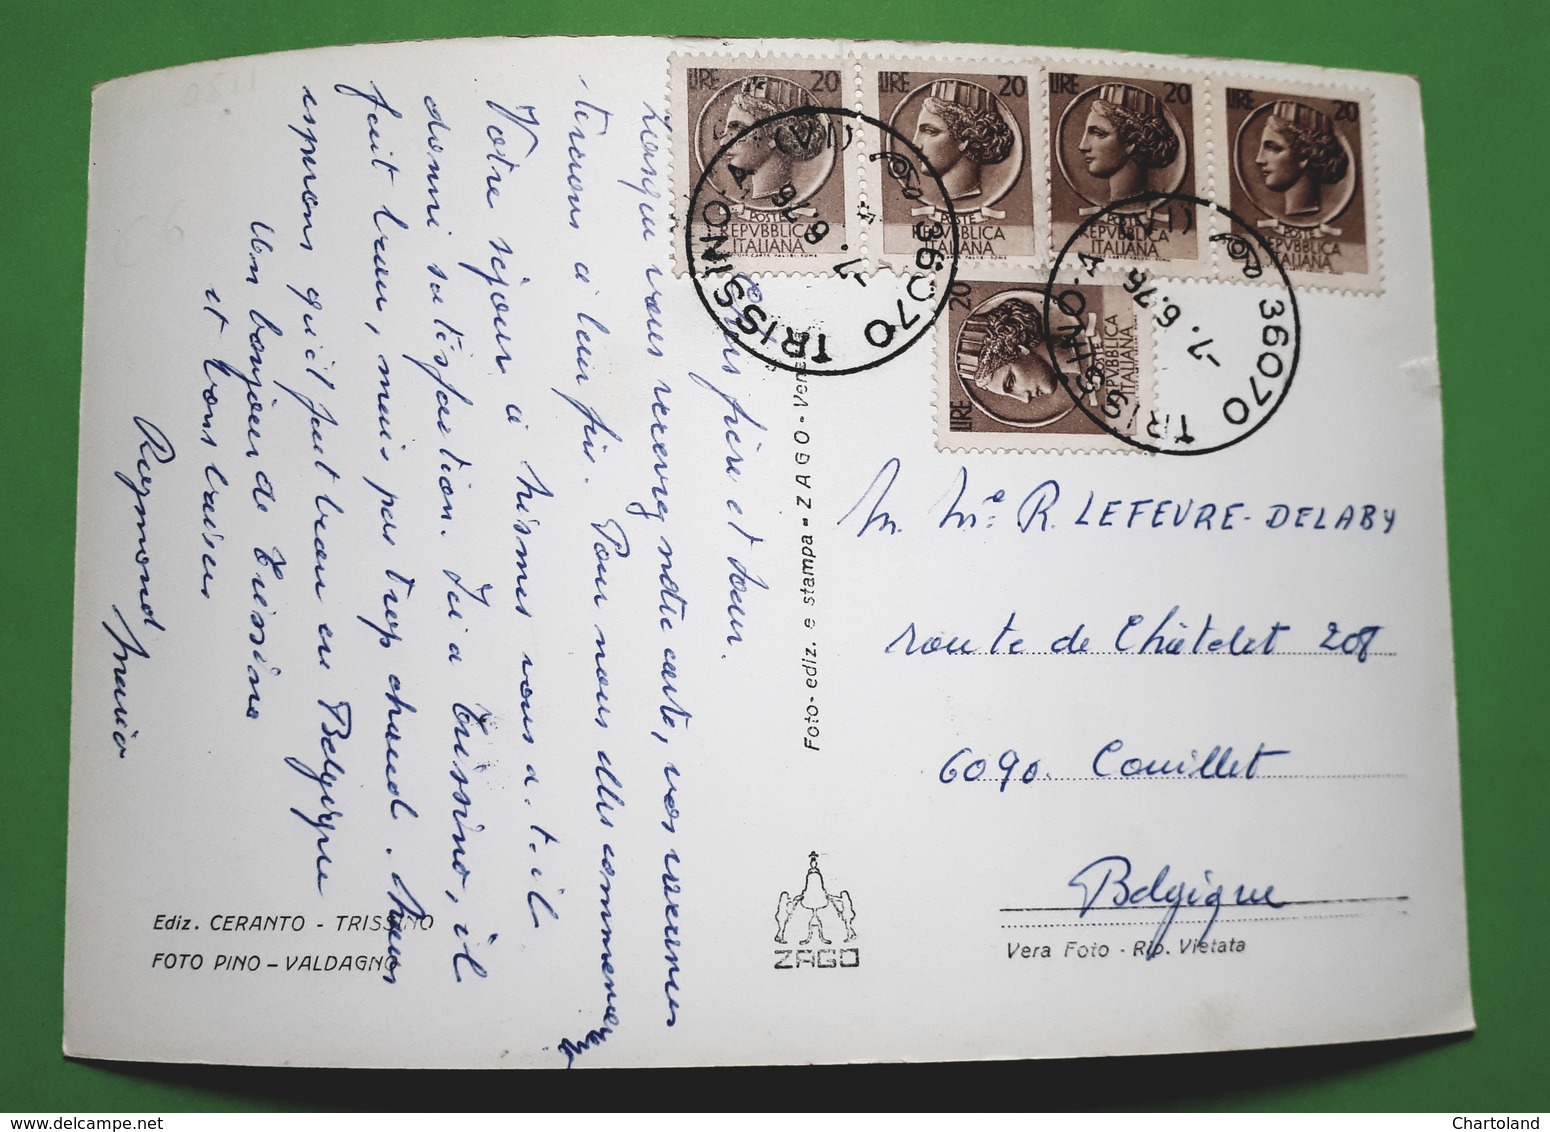 Chers frère et soeur.
Lorsque vous recevrez notre carte, vos vacances
seront à leur fin. Pour nous elles commencent
Votre séjour a Nismes vous a-t-il
donné satisfaction. Ici a Trissino, il
fait beau, mais pas trop chaud. Nous
espérons qu'il fait beau en Belgique
Un bonjour de Trissino
et bons baisers
Raymond Maria
M. Me R. LEFEVRE-DELABY
route de Châtelet 208
6090. Couillet
Belgique
LIRE 20
POSTE
REPVBBLICA
ITALIANA
LIRE 20
POSTE
REPVBBLICA
ITALIANA
LIRE 20
REPVBBLICA
ITALIANA
LIRE 20
POSTE
REPVBBLICA
ITALIANA
LIRE 20
POSTE
REPVBBLICA
ITALIANA
36070 TRISSINO · A (VI)
-7.6.76
36070 TRISSINO · A (VI)
-7.6.76
Foto-ediz. e stampa - ZAGO -
ZAGO
Ediz. CERANTO - TRISSINO
FOTO PINO - VALDAGNO
Vera Foto - Rip. Vietata
Chartoland